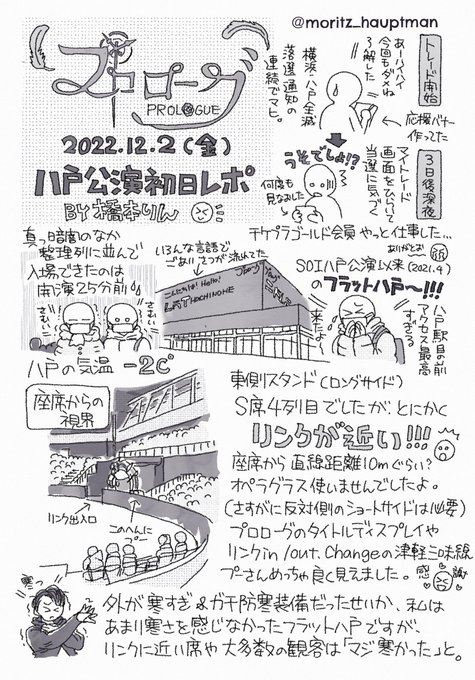 @moritz_hauptman
プロローグ
PROLOGUE
2022.12.2(金)
八戸公演初日レポ
BY 橋本りん
トレード開始
あーハイハイ
今回もダメね
了解した
横浜・八戸全滅
落選通知の
連続でマヒ。
応援バナー
作ってた
3日後深夜
マイトレード
画面をひらいて
当選に気づく
うそでしょ!?
何度も
見なおした
チケプラゴールド会員 やっと仕事した…
ありがとお
SOI八戸公演以来(2021.4)
のフラット八戸〜!!!
八戸駅目の前
アクセス最高
すぎる
来たよ
真っ暗闇のなか
整理列に並んで
入場できたのは
開演25分前
さむい
さむい
いろんな言語で
ごあいさつが流れてた
こんにちは! Hello!
FLAT HACHINOHE
八戸の気温 -2℃
座席からの
視界
リンク出入口
このへんに
プー
東側スタンド(ロングサイド)
S席4列目でしたが、とにかく
リンクが近い!!!
座席から直線距離10mぐらい?
オペラグラス使いませんでしたよ。
(さすがに反対側のショートサイドは必要)
プロローグのタイトルディスプレイや
リンクin/out、Changeの津軽三味線
プーさんめっちゃ良く見えました。感謝
寒
外が寒すぎ&ガチ防寒装備だったせいか、私は
あまり寒さを感じなかったフラット八戸ですが、
リンクに近い席や大多数の観客は「マジ寒かった」と。